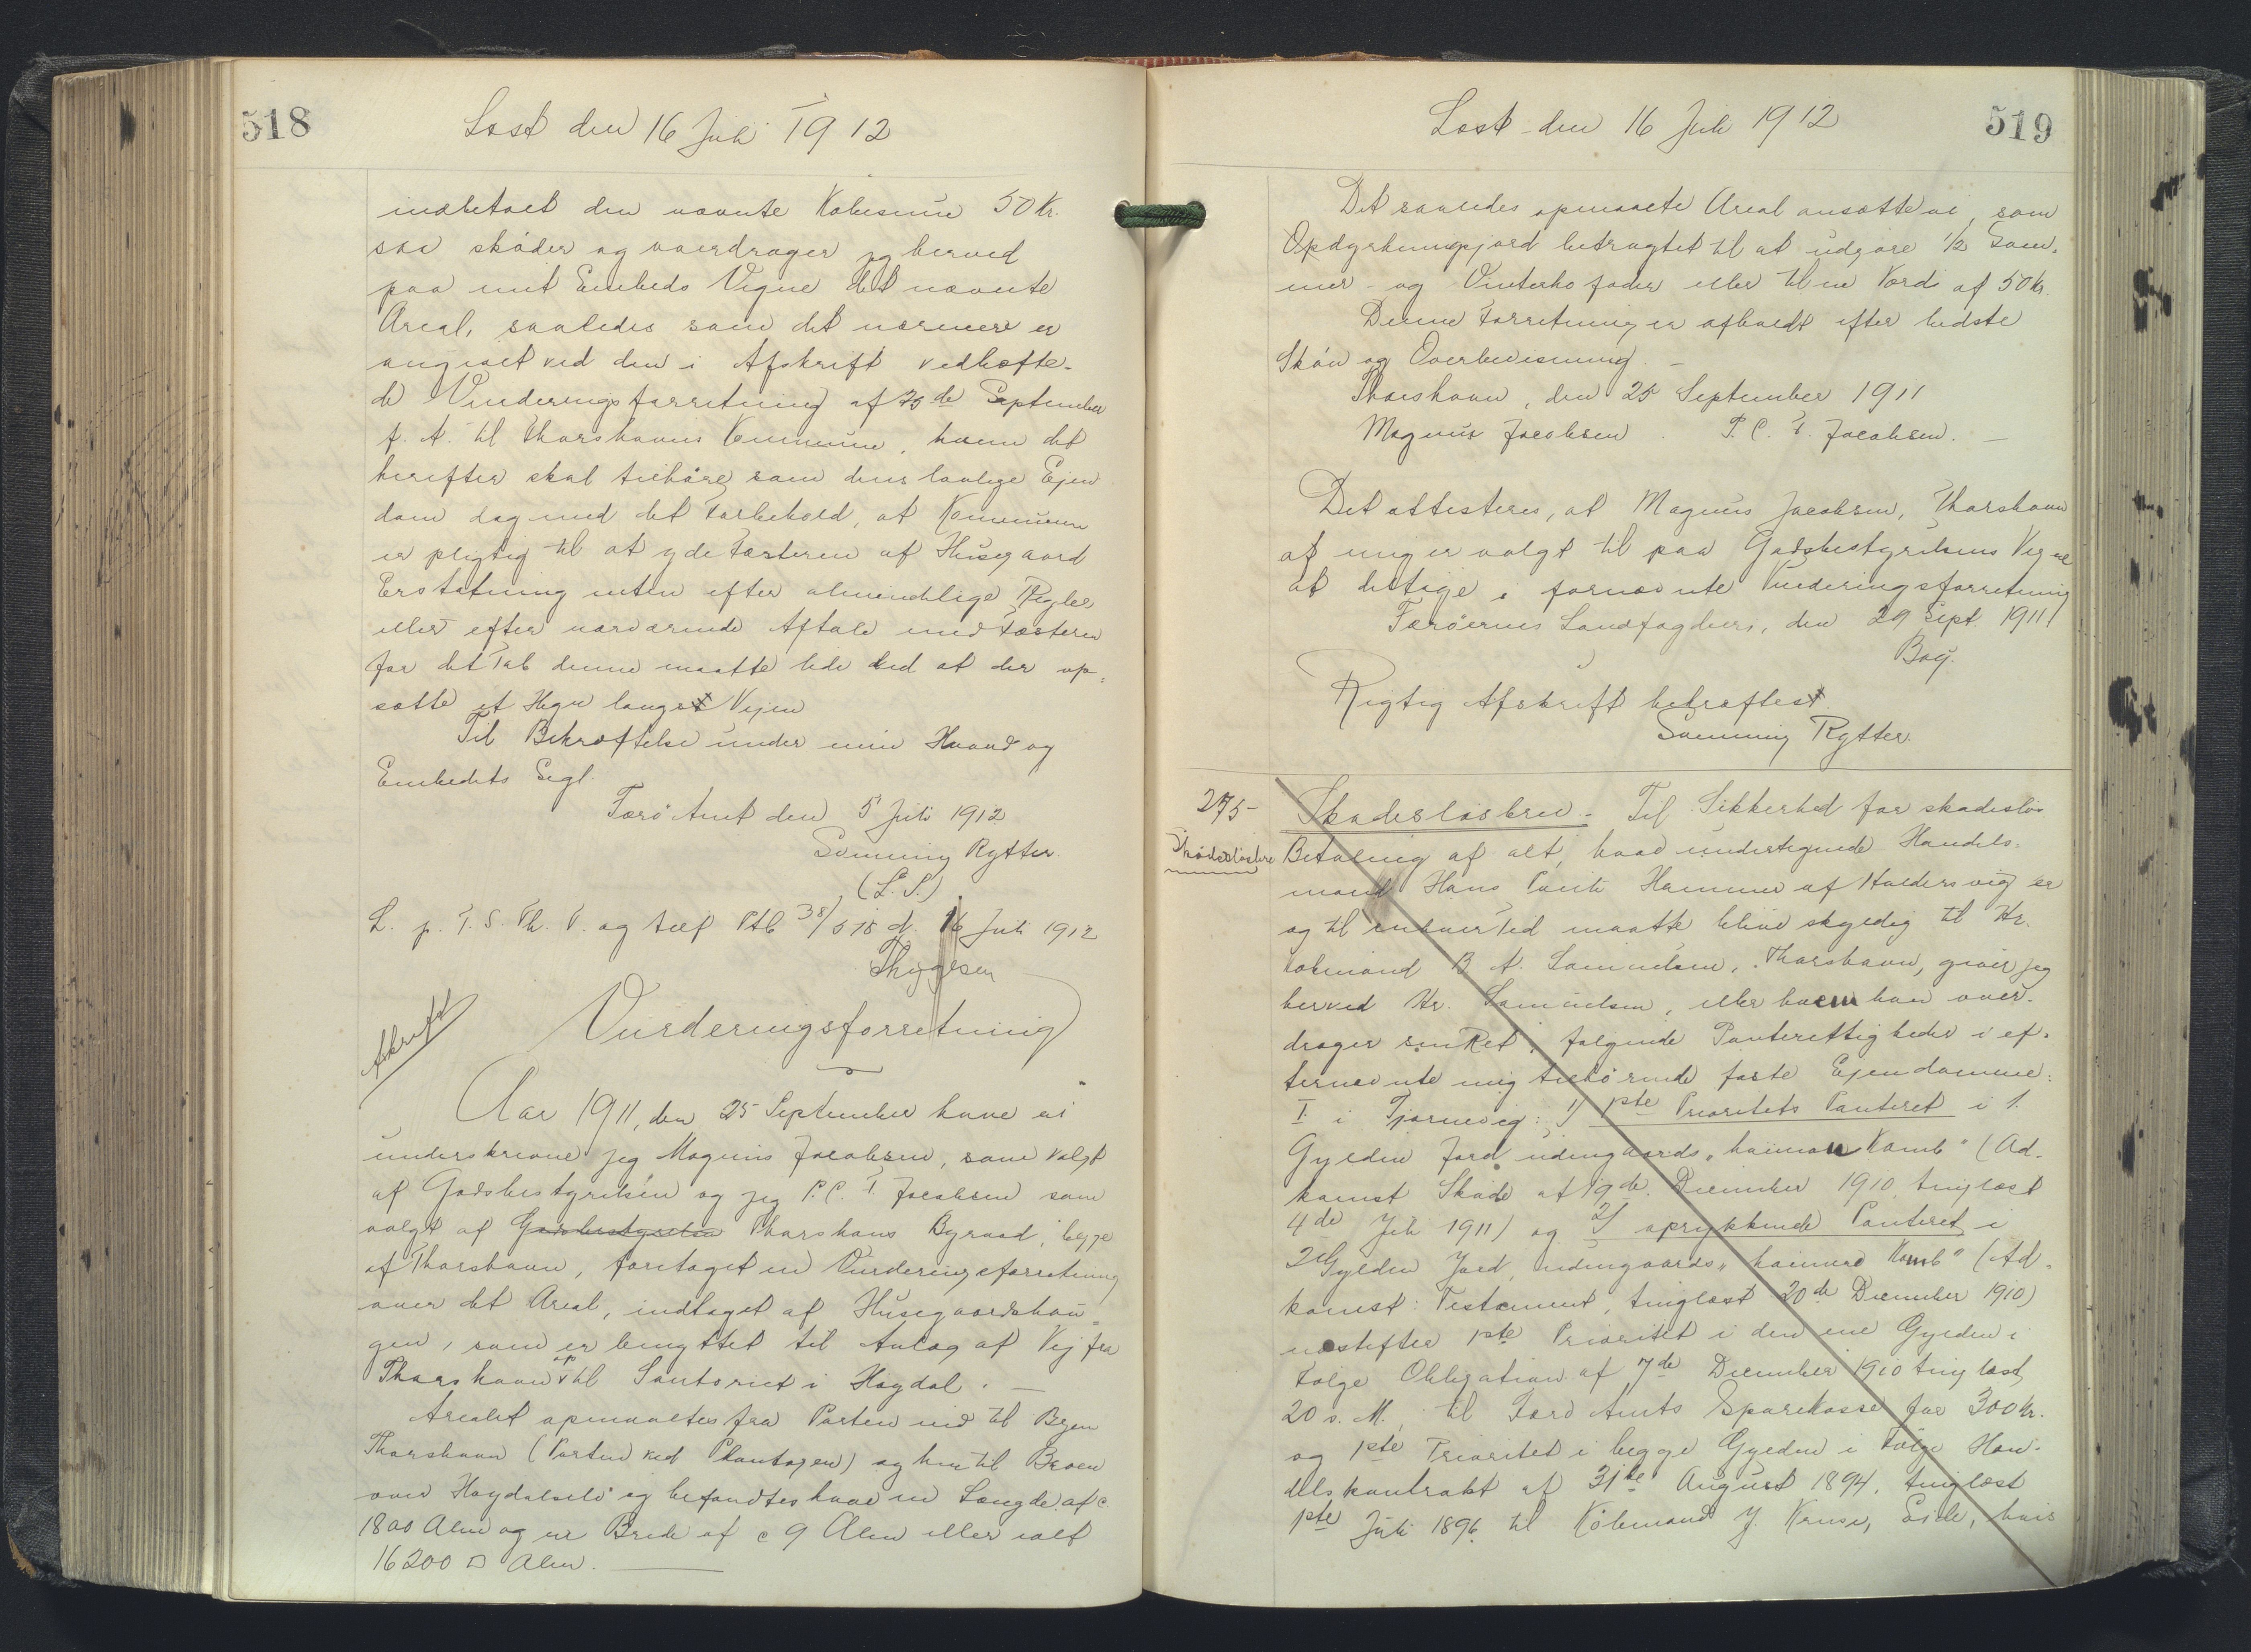 518
Læst den 16 Juli 1912
indbetalt den nævnte Købesum 50 Kr.
saa skøder og overdrager jeg herved
paa mit Embeds Vegne det nævnte
Areal, saaledes som det nærmere er
angivet ved den i Afskrift vedhæfte-
de Vurderingsforretning af 25de September
f. A. til Thorshavns Kommune, hvem det
herefter skal tilhøre som dens lovlige Ejen
dom dog med det Forbehold, at Kommunen
er pligtig til at yde Fæsteren af Husegaard
Erstatning enten efter almindelige Regler
eller efter nærværende Aftale med Fæsteren
for det Tab denne maatte lide ved at der op=
sætte et Hegn langs Vejen
Til Bekræftelse under min Haand og
Embedets Segl.
Færø Amt den 5 Juli 1912
Svenning Rytter.
(L. S.)
L. p. T. S. Th. P. og Ptb 38/515 d. 16 Juli 1912
Thygesen
Afskrift
Vurderingsforretning
Aar 1911, den 25 September have vi
underskrevne jeg Magnus Jacobsen, som valgt
af Godsbestyrelsen og jeg P. C. P. Jacobsen som
valgt af Godsbestyrelsen Thorshavns Byraad, begge
af Thorshavn, foretaget en Vurderingsforretning
over det Areal, indtaget af Husegaardshau=
gen, som er benyttet til Anlæg af Vej fra
Thorshavn op til Santoriet i Hoydal. —
Arealet opmaaltes fra Porten ind til Byen
Thorshavn (Porten ved Plantagen) og hen til Broen
over Hoydalselv og befandtes have en Længde af c.
1800 Alen og en Brede af c 9 Alen eller ialt
16200 □ Alen.
519
Læst den 16 Juli 1912
Det saaledes opmaalte Areal ansætte vi, som
Opdyrkningsjord betragtet til at udgøre 1/2 Som-
mer- og Vinterkofoder eller til en Værdi af 50 Kr.
Denne Forretning er afholdt efter bedste
Skøn og Overbevisning. —
Thorshavn, den 25 September 1911
Magnus Jacobsen. P. C. P. Jacobsen. —
Det attesteres, at Magnus Jacobsen, Thorshavn
af mig er valgt til paa Godsbestyrelsens Vegne
at deltage i fornævnte Vurderingsforretning
Færøernes Landfogderi, den 29 Sept. 1911
Bay.
Rigtig Afskrift bekræftes
Svenning Rytter.
275-
Skadesløsbrev
Skadesløsbrev. - Til Sikkerhed for skadesløs
Betaling af alt, hvad undertegnede Handels-
mand Hans Pauli Hammer af Haldersvig er
og til enhver Tid maatte blive skyldig til Hr.
Købmand B. A. Samuelsen, Thorshavn, giver jeg
herved Hr. Samuelsen, eller hvem han over-
drager sin Ret, følgende Panterettigheder i ef-
ternævnte mig tilhørende faste Ejendomme:
I. i Tjørnevig: 1) 1ste Prioritets Panteret i 1.
Gylden Jord udengaards „ Kamb" (Ad-
komst Skøde af 19de. December 1910, tinglæst
4de Juli 1911) og 2/ oprykkende Panteret i
2 Gylden Jord, udengaards „ Kamb" (Ad-
komst: Testament, tinglæst 20de December 1910)
næstefter 1ste Prioritet i den ene Gylden i
Følge Obligation af 7de December 1910 tinglæst
20 s. M., til Færø Amts Sparekasse for 300 Kr.
og 1ste Prioritet i begge Gylden i Følge Han-
delskontrakt af 31te August 1894, tinglæst
1ste Juli 1896 til Købmand J. Kruse, Eide, hvis